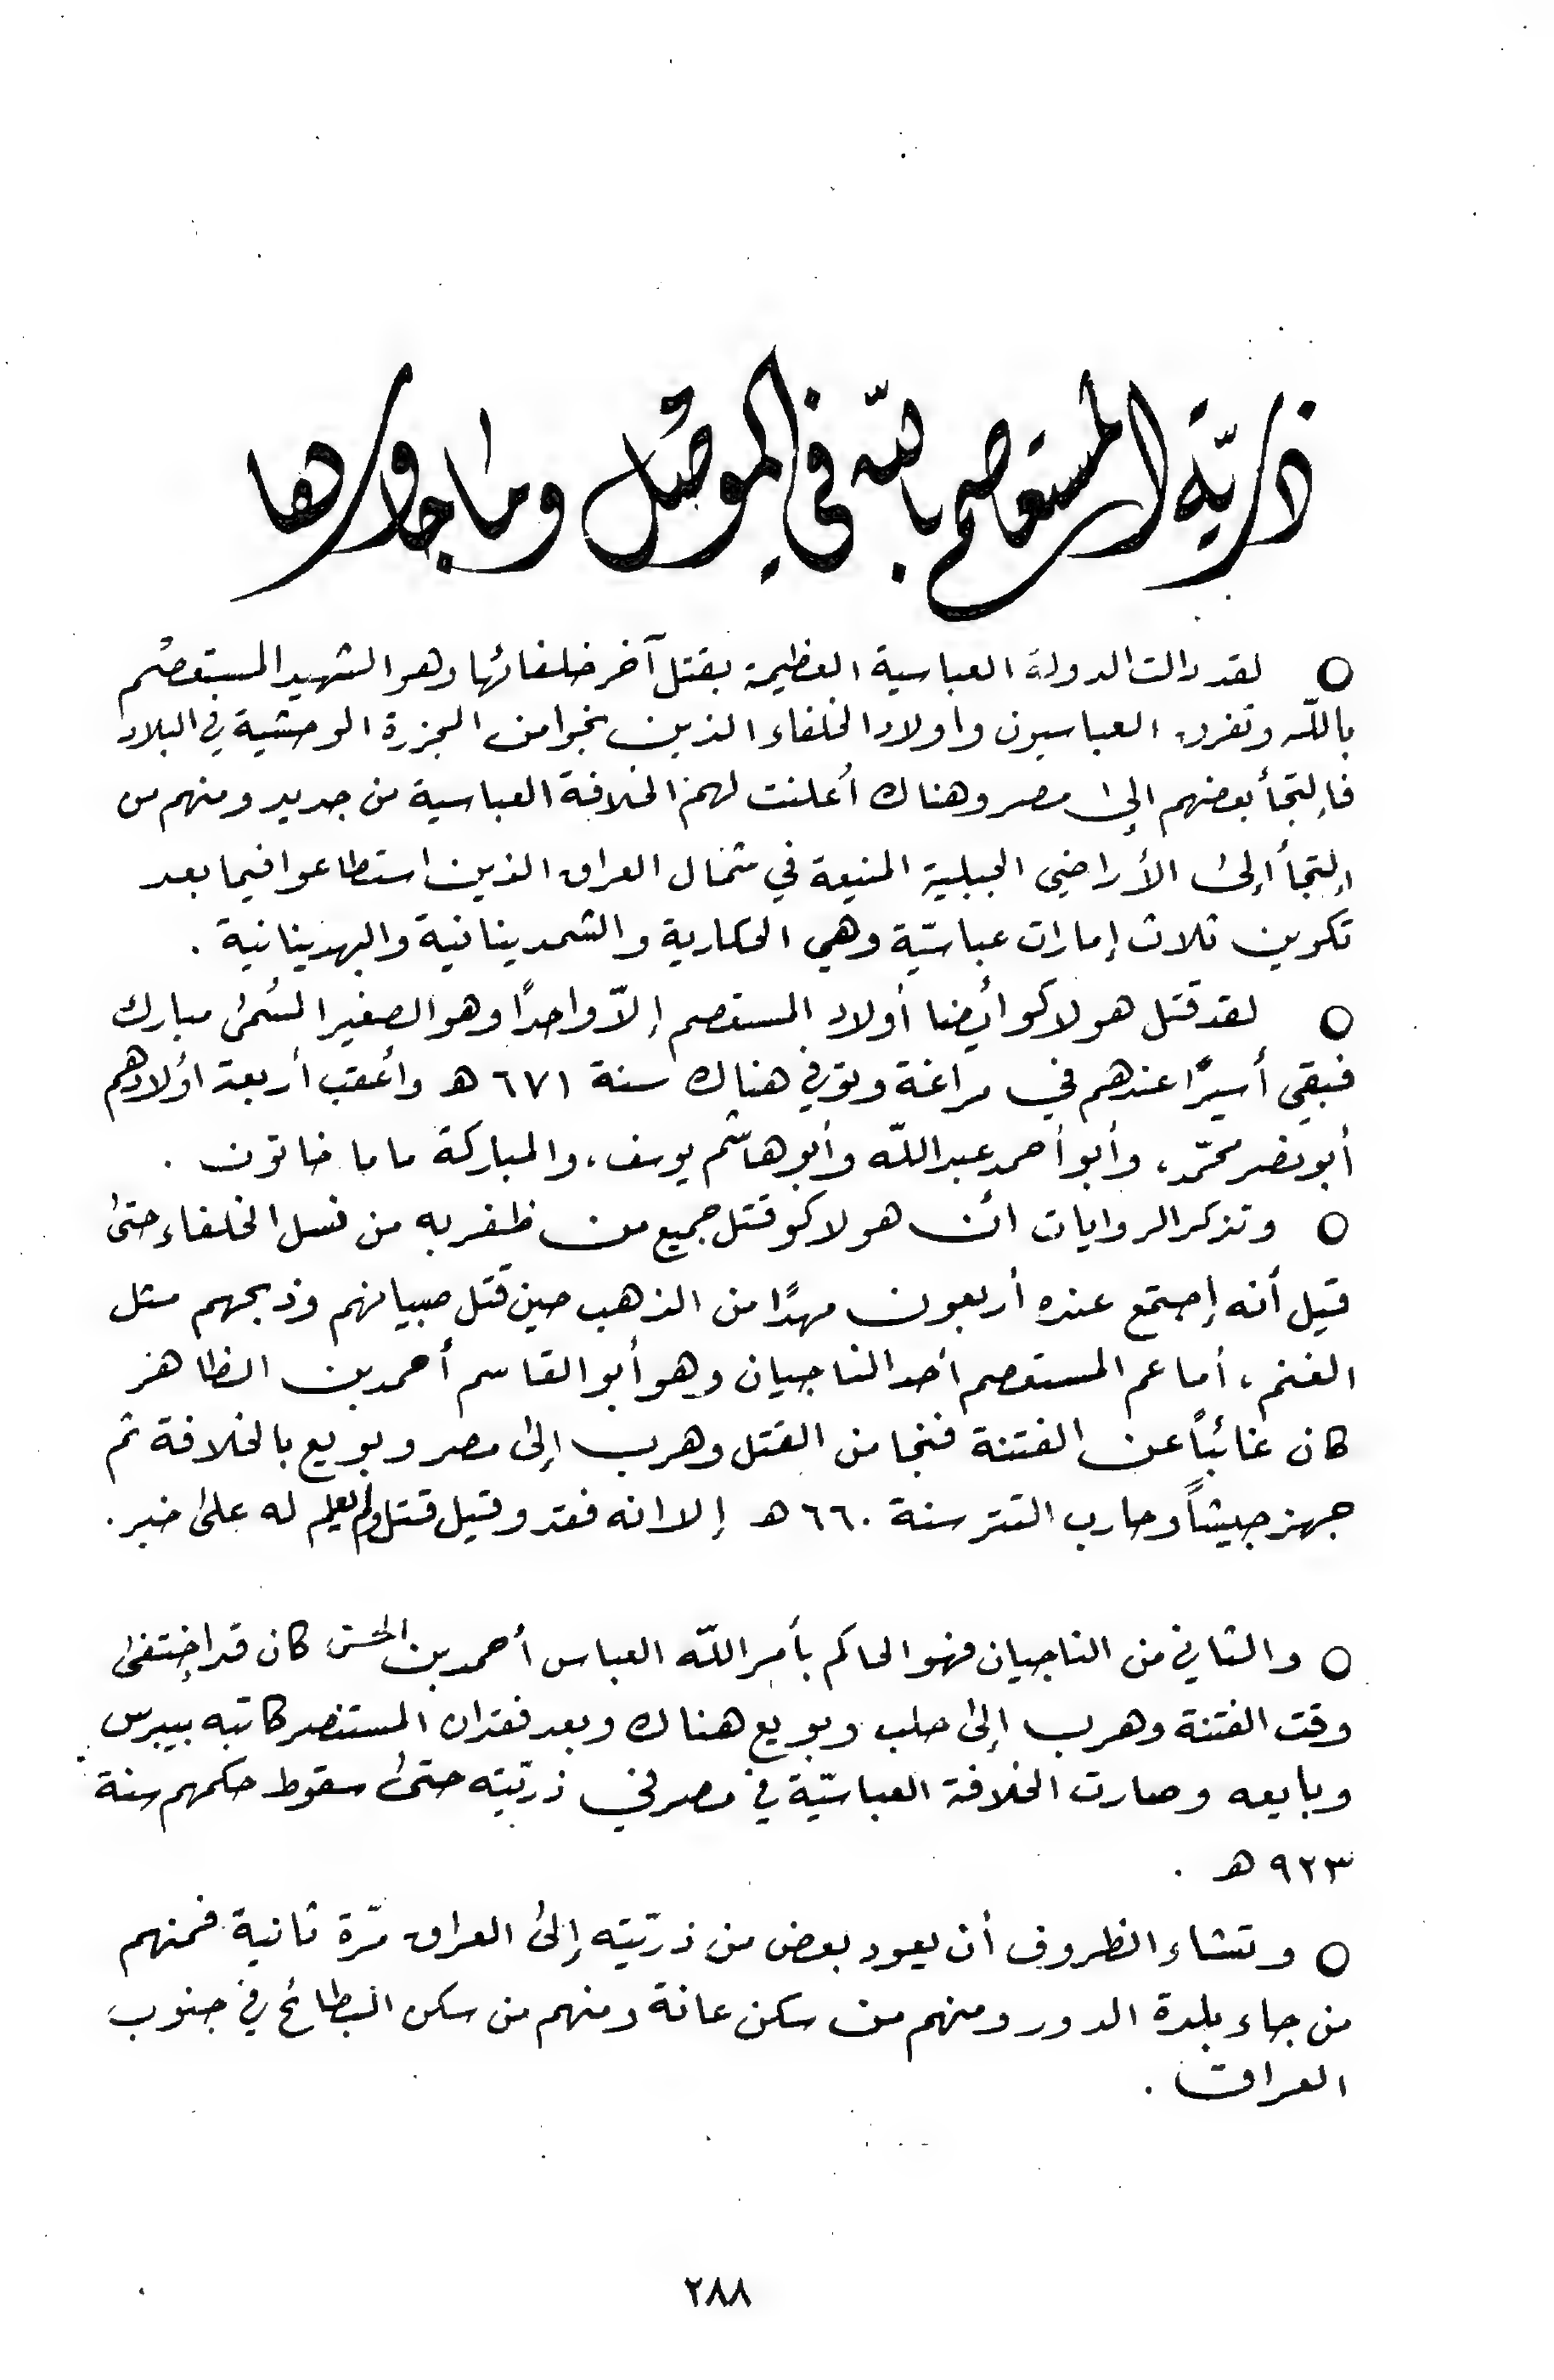 ذريّة المستعصم بالله في الموصل وما جاورها
○ لقد دالت الدولة العباسية العظيمة بقتل آخر خلفائها وهو الشهيد المستعصم
بالله وتفرق العباسيون واولاد الخلفاء الذين نجوا من المجزرة الوحشية في البلاد
فإلتجأ بعضهم إلى مصر وهناك أُعلنت لهم الخلافة العباسية من جديد ومنهم من
إلتجأ إلى الأراضي الجبلية المنيعة في شمال العراق الذين استطاعوا فيما بعد
تكوين ثلاث إمارات عباسيّة وهي الحكارية والشمدينانية والبهدينانية .
○ لقد قتل هولاكو أيضا أولاد المستعصم إلاّ واحدًا وهو الصغير المسُمى مبارك
فبقي أسيرًا عندهم في مراغة وتوفي هناك سنة ٦٧١ هـ وأعقب أربعة اولاد هم
أبو نصر محمّد، وأبو أحمد عبد اللّه وأبو هاشم يوسف، والمباركة ماما خاتون .
○ وتذكر الروايات ان هولاكو قتل جميع من ظفر به من نسل الخلفاء حتى
قيل أنه إجتمع عنده أربعون مهدًا من الذهب حين قَتل صبيانهم وذبحهم مثل
الغنم، أما عم المستعصم أحد الناجيان وهو أبو القاسم أحمد بن الظاهر
كان غائباً عن الفتنة فنجا من القتل وهرب إلى مصر وبويع بالخلافة ثم
جهز جيشاً وحارب التتر سنة ٦٦٠ هـ إلا انه فقد وقيل قتل ولم يعلم له على خبر.
○ والثاني من الناجيان فهو الحاكم بأمر اللّه العباس أحمد بن الحسن كان قد إختفى
وقت الفتنة وهرب إلى حلب وبويع هناك وبعد فقدان المستنصر كاتبه بيبرس
وبايعه وصارت الخلافة العباسيّة في مصر في ذريّته حتى سقوط حكمهم سنة
٩٢٣ هـ .
○ وتشاء الظروف أن يعود بعض من ذريّته إلى العراق مرّة ثانية فمنهم
من جاء بلدة الدور ومنهم من سكن عانة ومنهم من سكن البطائح في جنوب
العراق .
٢٨٨